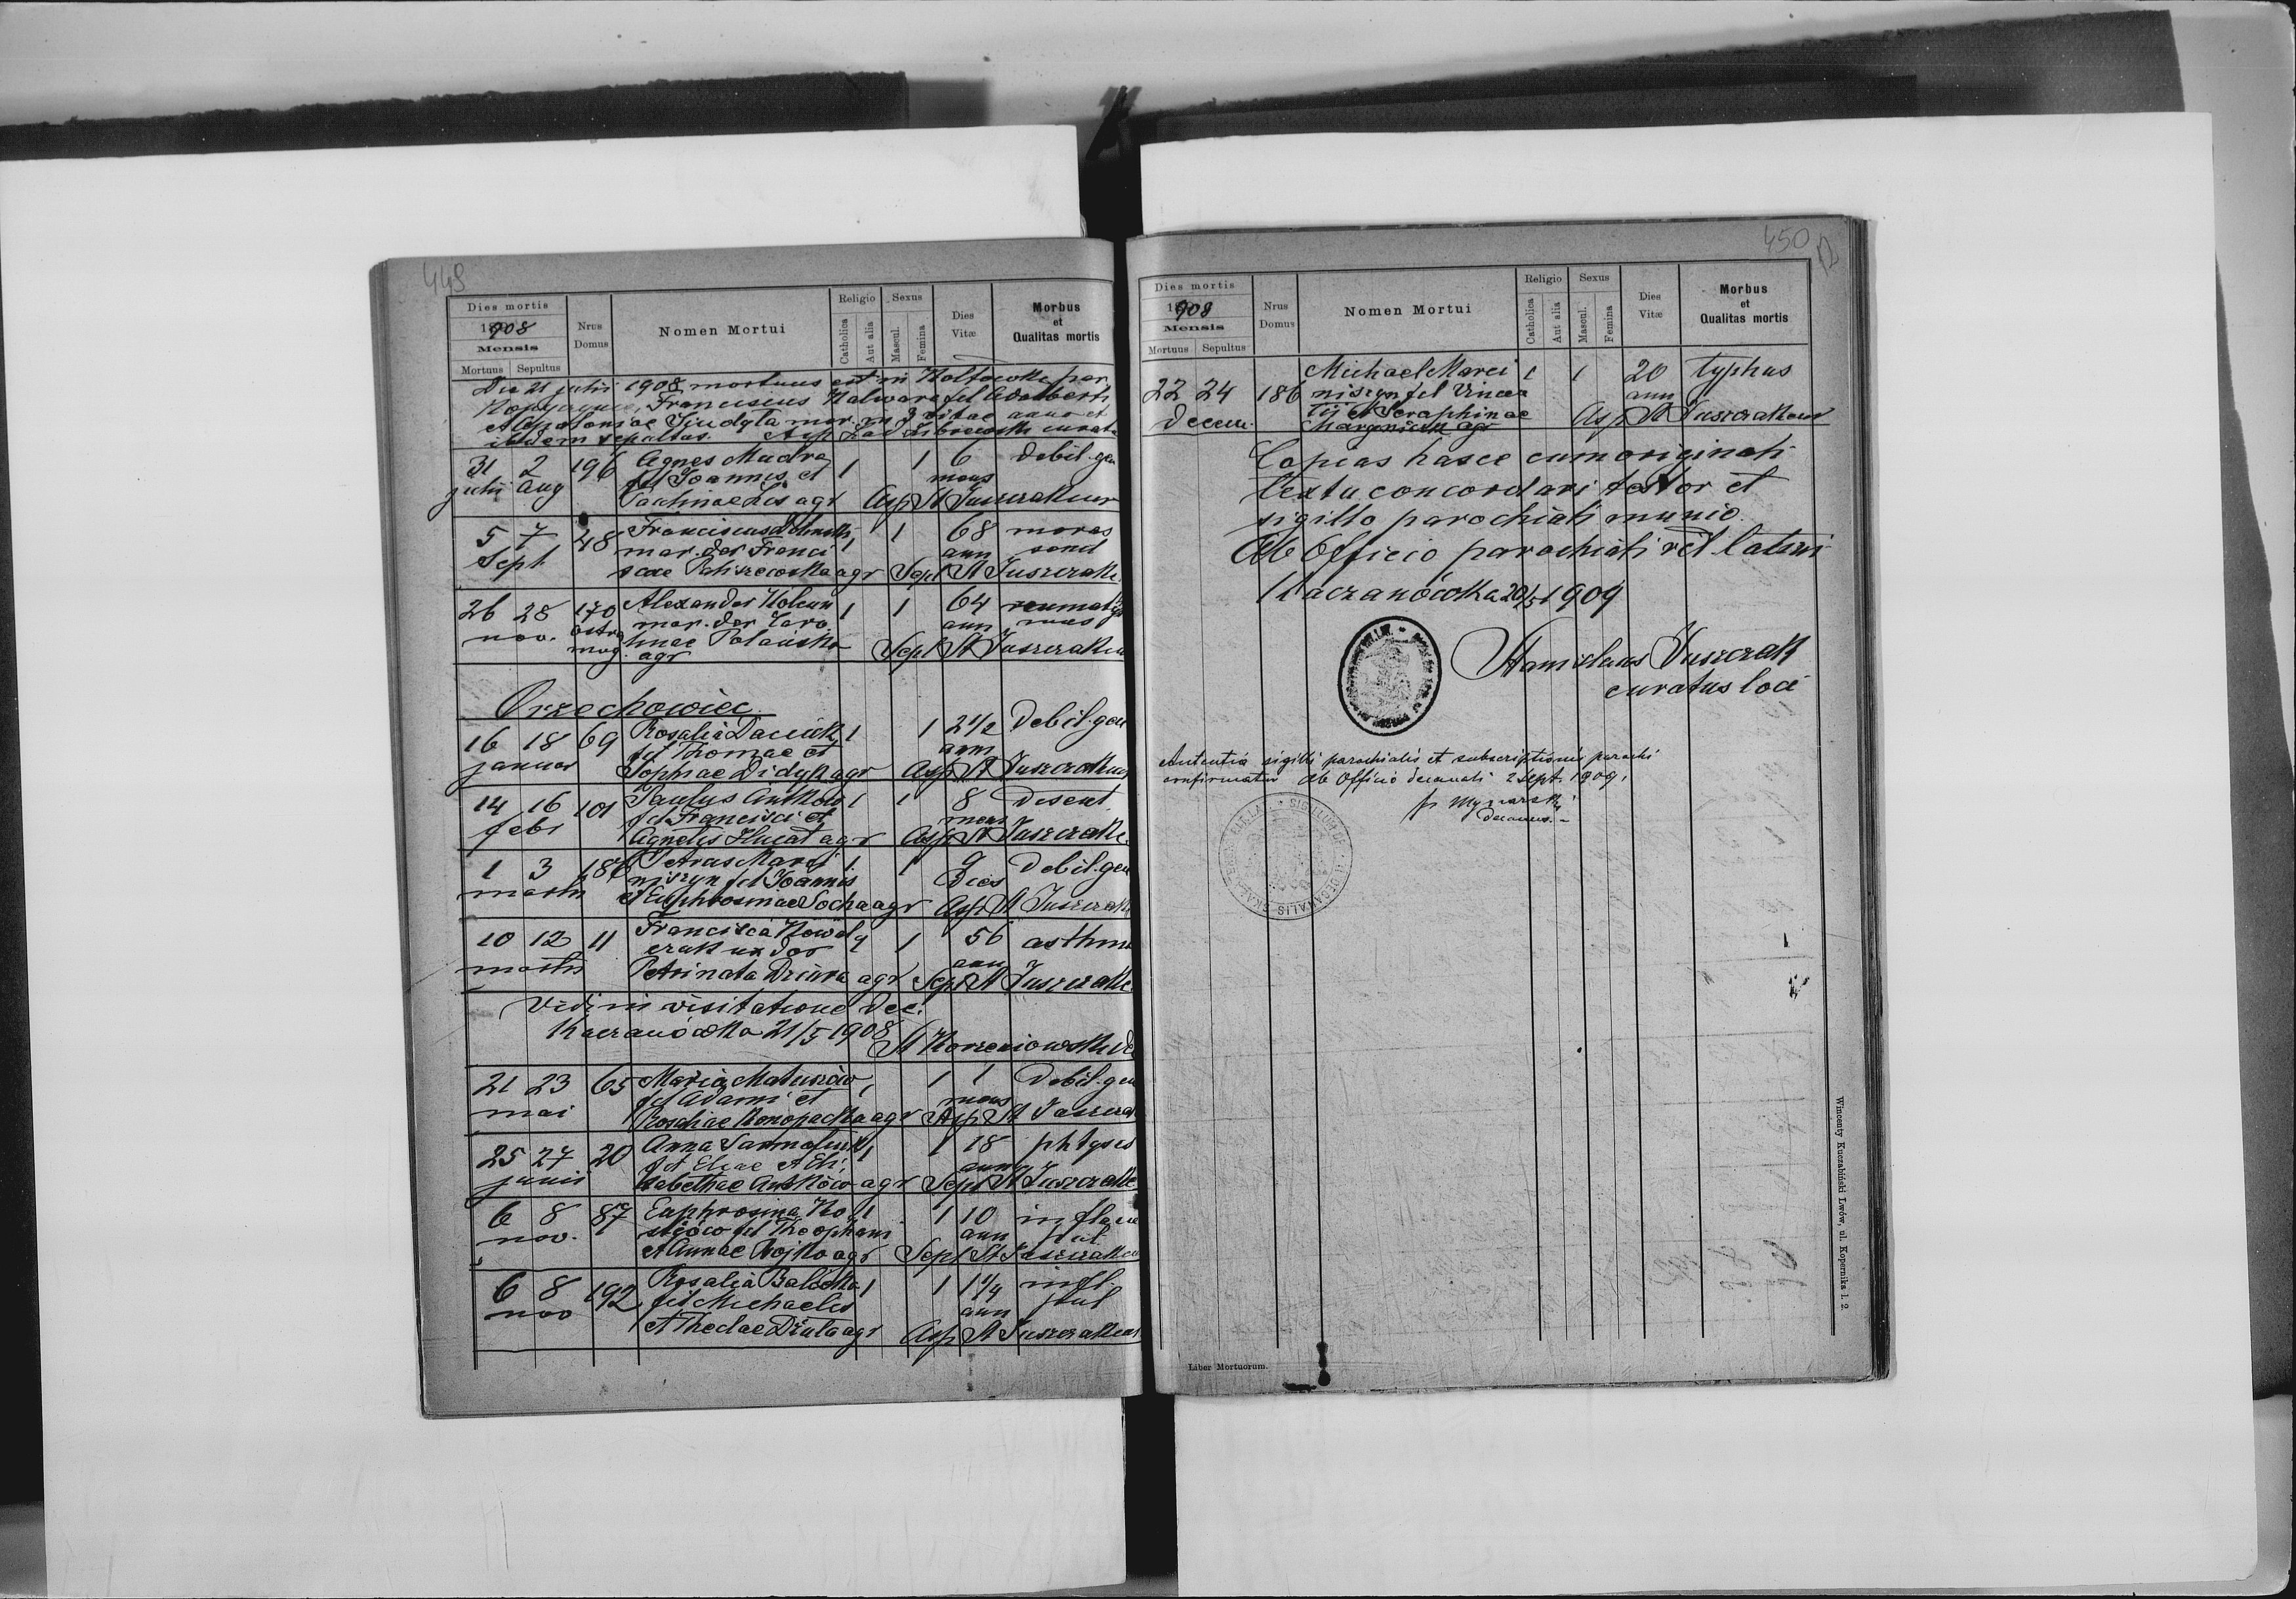 449
Dies mortis
1908
Mensis
Mortuus Sepultus
Nrus Domus
Nomen Mortui
Religio
Catholica
Aut alia
Sexus
Mascul.
Femina
Dies Vitæ
Morbus
et
Qualitas mortis
Die 21 julii 1908 mortuus est in par
Franciscus fil Adalberti
et Apoloniae mor. in 3 vitae anno et
ibidem sepultus.
31 2 196 Agnes Mudra 1 1 6 Debil. gen
julii Aug fil Joannis et mens
Paulinae Lis agr Asp St Juszczak cur
5 7 48 Franciscus 1 1 68 moros
Sept mar. der Franci ann
scae agr Sept St Juszczak
26 28 170 Alexander 1 1 64
nov. mar. der Caro ann
linae Polańska
agr Sept St Juszczak cu
Orzechowiec
16 18 69 Rosalia 1 1 2 1/2 Debil. gen
januar fil Thomae et ann
Sophiae Didyk agr Asp St Juszczak cur
14 16 101 Paulus Antków 1 1 8
febr fil Francisci et mens
Agnetis agr Asp St Juszczak
1 3 186 Petrus Marci 1 1 9 Debil. gen
martii niszyn fil Joannis Dies
et Euphrosinae Socha agr Asp St Juszczak
10 12 11 Francisca Kowal 1 56 asthma
martii czuk ux der ann
Petri nata Dziura agr Sept St Juszczak
Vidi in visitatione Dec.
Kaczanówka 21/5 1908
St Korzeniowski
21 23 65 Maria Matuszów 1 1 1 Debil. gen
mai fil Adami et mens
Rosaliae Konopacka agr Asp St Juszczak
25 27 20 Anna 1 1 18 phtysis
junii fil Eliae et Eli ann
sabethae Antków agr Sept St Juszczak
6 8 87 Euphrosina Ko 1 1 10 inflam
nov. fil Theophani ann pul
et Annae Wojko agr Sept St Juszczak cu
6 8 192 Rosalia 1 1 1 1/4 infl.
nov fil Michaelis ann pul
et Theclae agr Asp St Juszczak cur
450
Dies mortis
1908
Mensis
Mortuus Sepultus
Nrus Domus
Nomen Mortui
Religio
Catholica
Aut alia
Sexus
Mascul.
Femina
Dies Vitæ
Morbus
et
Qualitas mortis
22 24 186 Michael Marci 1 1 20 typhus
Decem. niszyn fil Vincen ann
tij et Seraphinae Asp St Juszczak cur
agr
Copias hasce cum originali
textu concordari testor et
sigillo parochiali munio.
Ab Officio parochiali rit. latini
Kaczanówka 20/5 1909
Stanislaus Juszczak
curatus loci
Autentia sigilli parochialis et subscriptionis parochi
confirmatur Ab Officio decanali 2 Sept. 1909.
decanus.
Liber Mortuorum.
Wincenty Kuczabiński Lwów, ul. Kopernika l. 2.